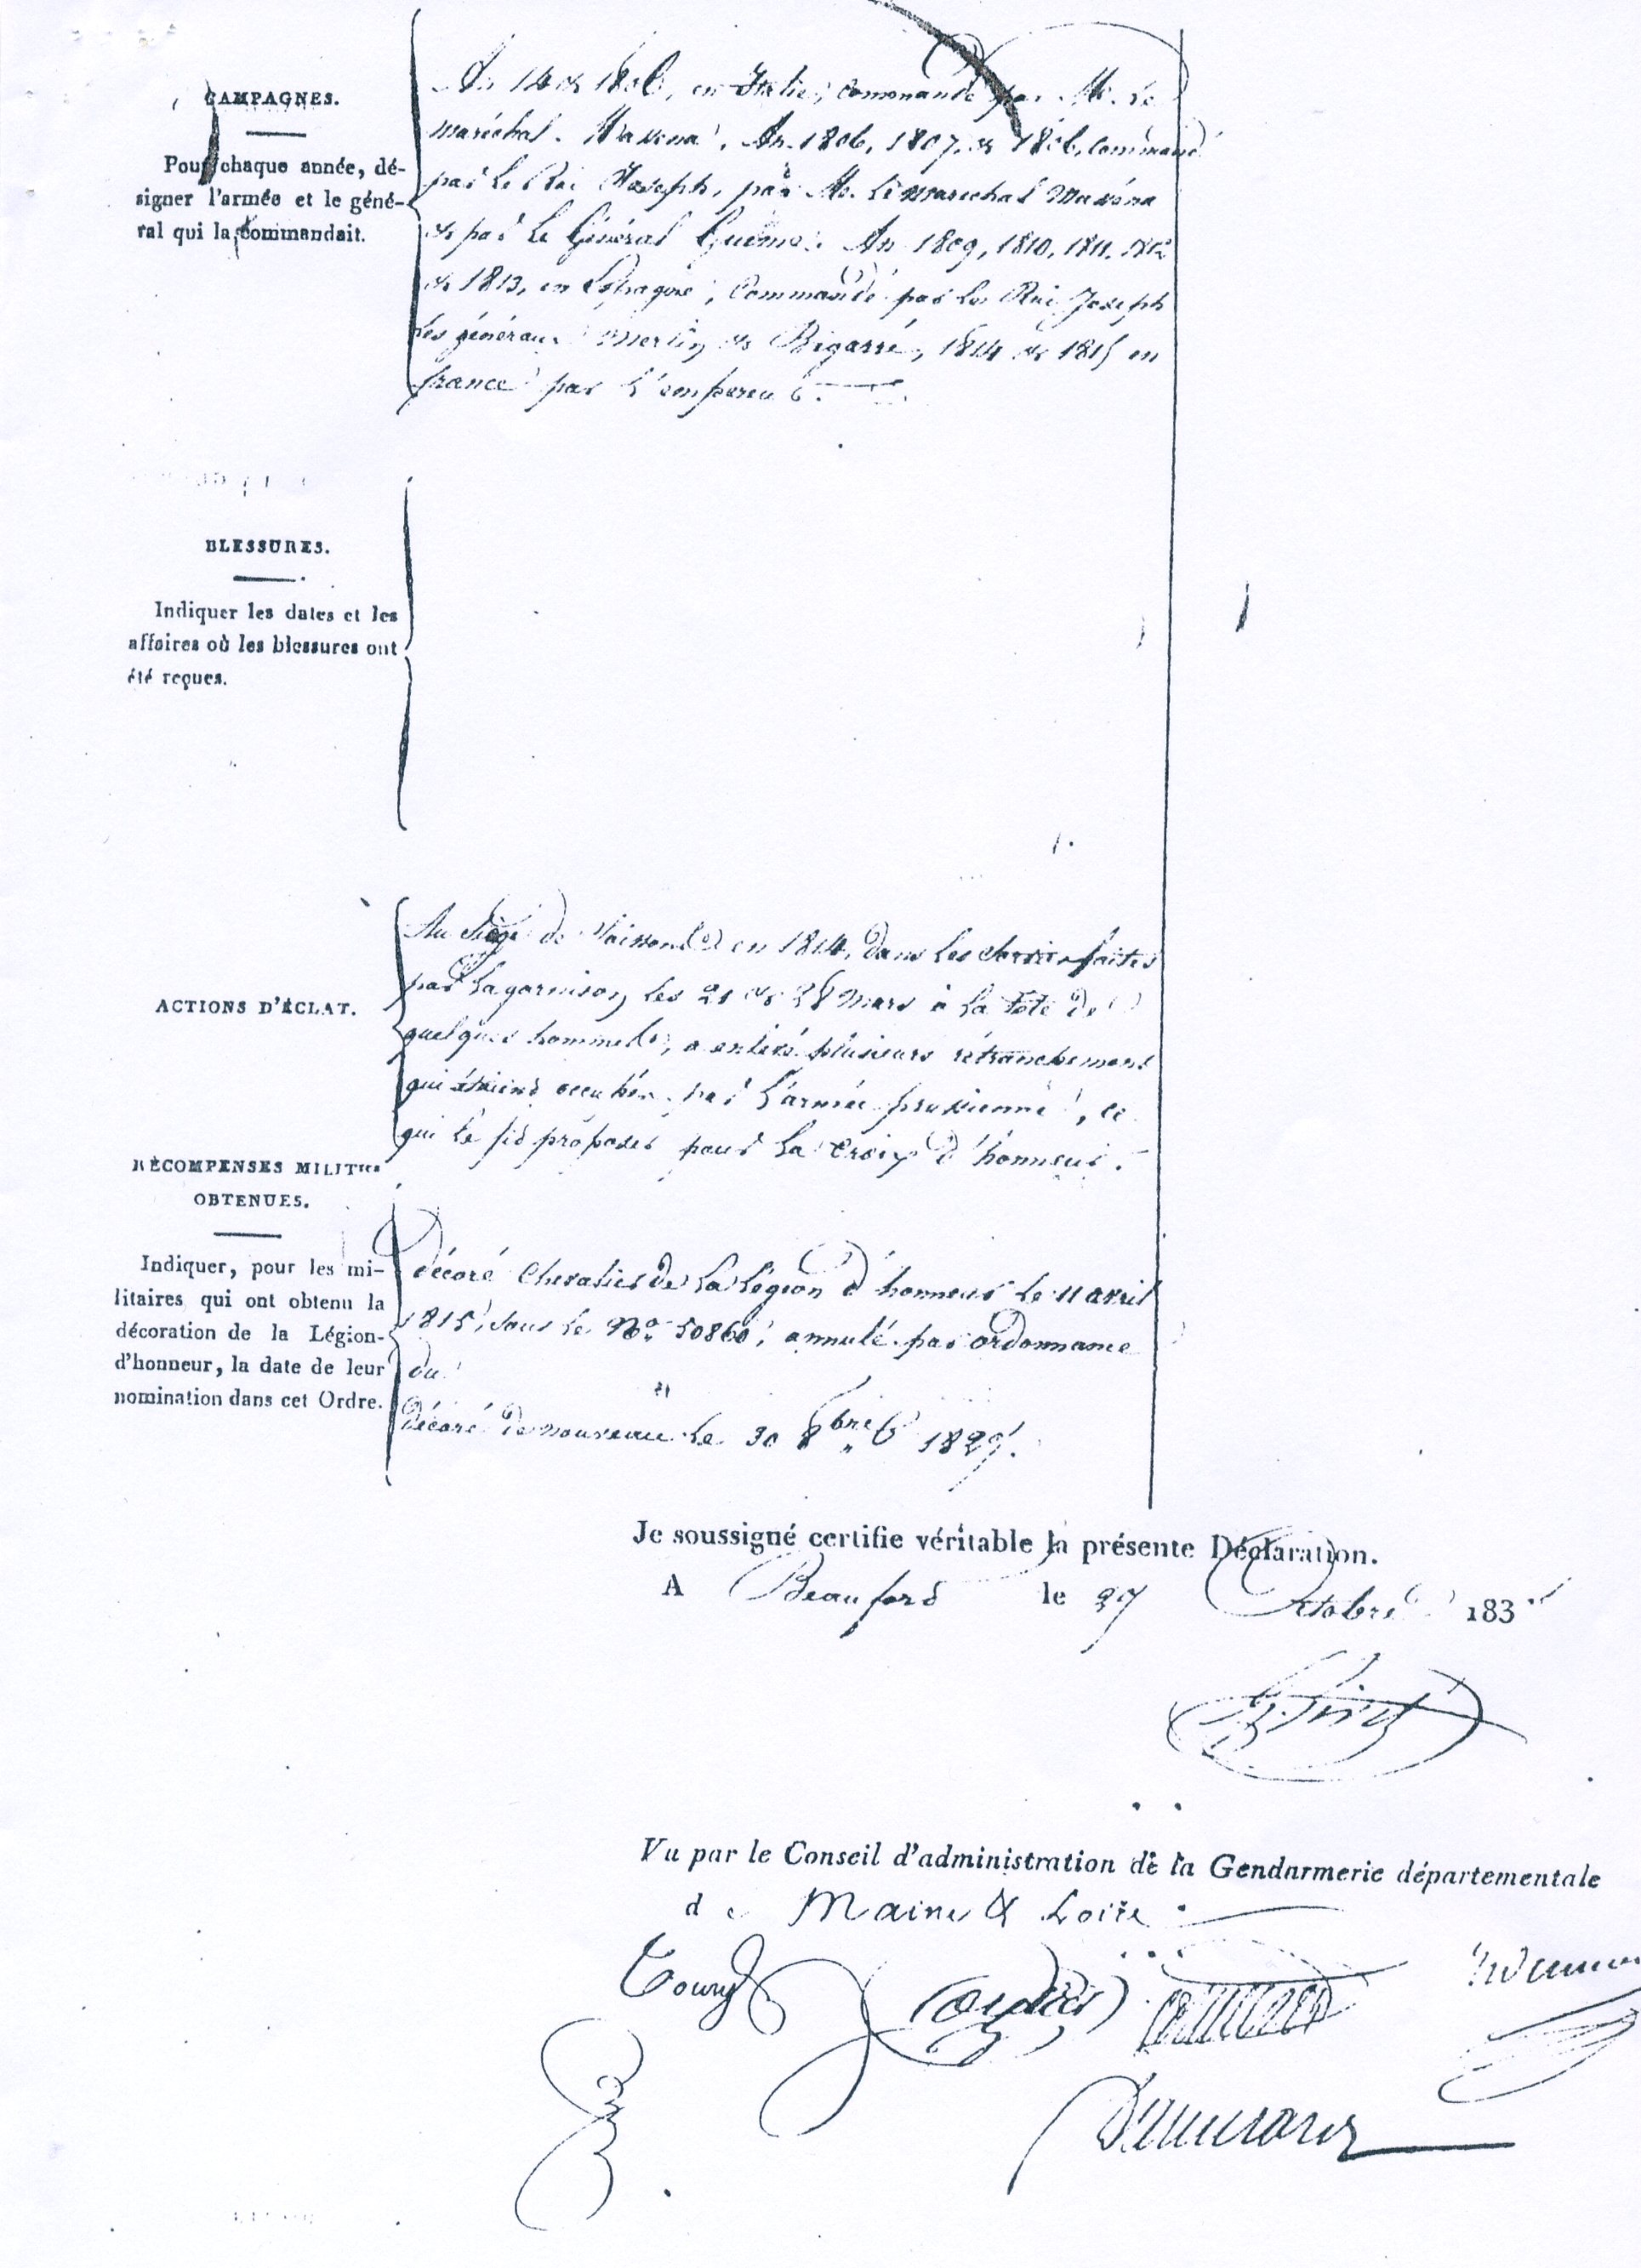 CAMPAGNES.
Pour chaque année, dé-
signer l'armée et le géné-
ral qui la commandait.
An 14 & 1806, en Italie, commandé par Mr. le
maréchal Massena, An 1806, 1807, & 1808, commandé
par le Roi Joseph, par Mr. le marechal Massena
& par le Général An 1809, 1810, 1811, 1812
& 1813, en Espagne, Commandé par le Roi Joseph
les généraux Merlin & Bigarré, 1814 & 1815 en
france par l'empereur.
BLESSURES.
Indiquer les dates et les
affaires où les blessures ont
été reçues.
ACTIONS D'ÉCLAT.
Au Siège de Soissons en 1814, dans les faites
par la garnison les 21 & 28 Mars à la tête de
quelques hommes, a enlevé plusieurs retranchemens
qui étaient occupés par l'armée prussienne, ce
qui le fit proposer pour la Croix d'honneur.
RÉCOMPENSES MILITres
OBTENUES.
Indiquer, pour les mi-
litaires qui ont obtenu la
décoration de la Légion-
d'honneur, la date de leur
nomination dans cet Ordre.
Décoré Chevalier de la Légion d'honneur le 11 avril
1815, sous le No. 50860, annulé par ordonnance
du
Décoré de nouveau le 30 8bre 1827.
Je soussigné certifie véritable la présente Déclaration.
A Beaufort le 27 Octobre 183
Vu par le Conseil d'administration de la Gendarmerie départementale
de Maine & Loire